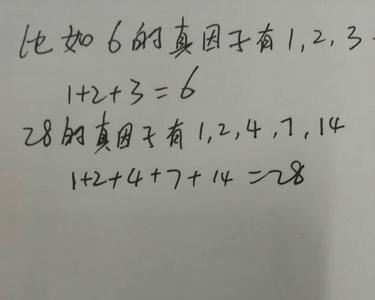 比如6的真因子有1,2,3.
1+2+3=6
28的真因子有1,2,4,7,14
1+2+4+7+14=28